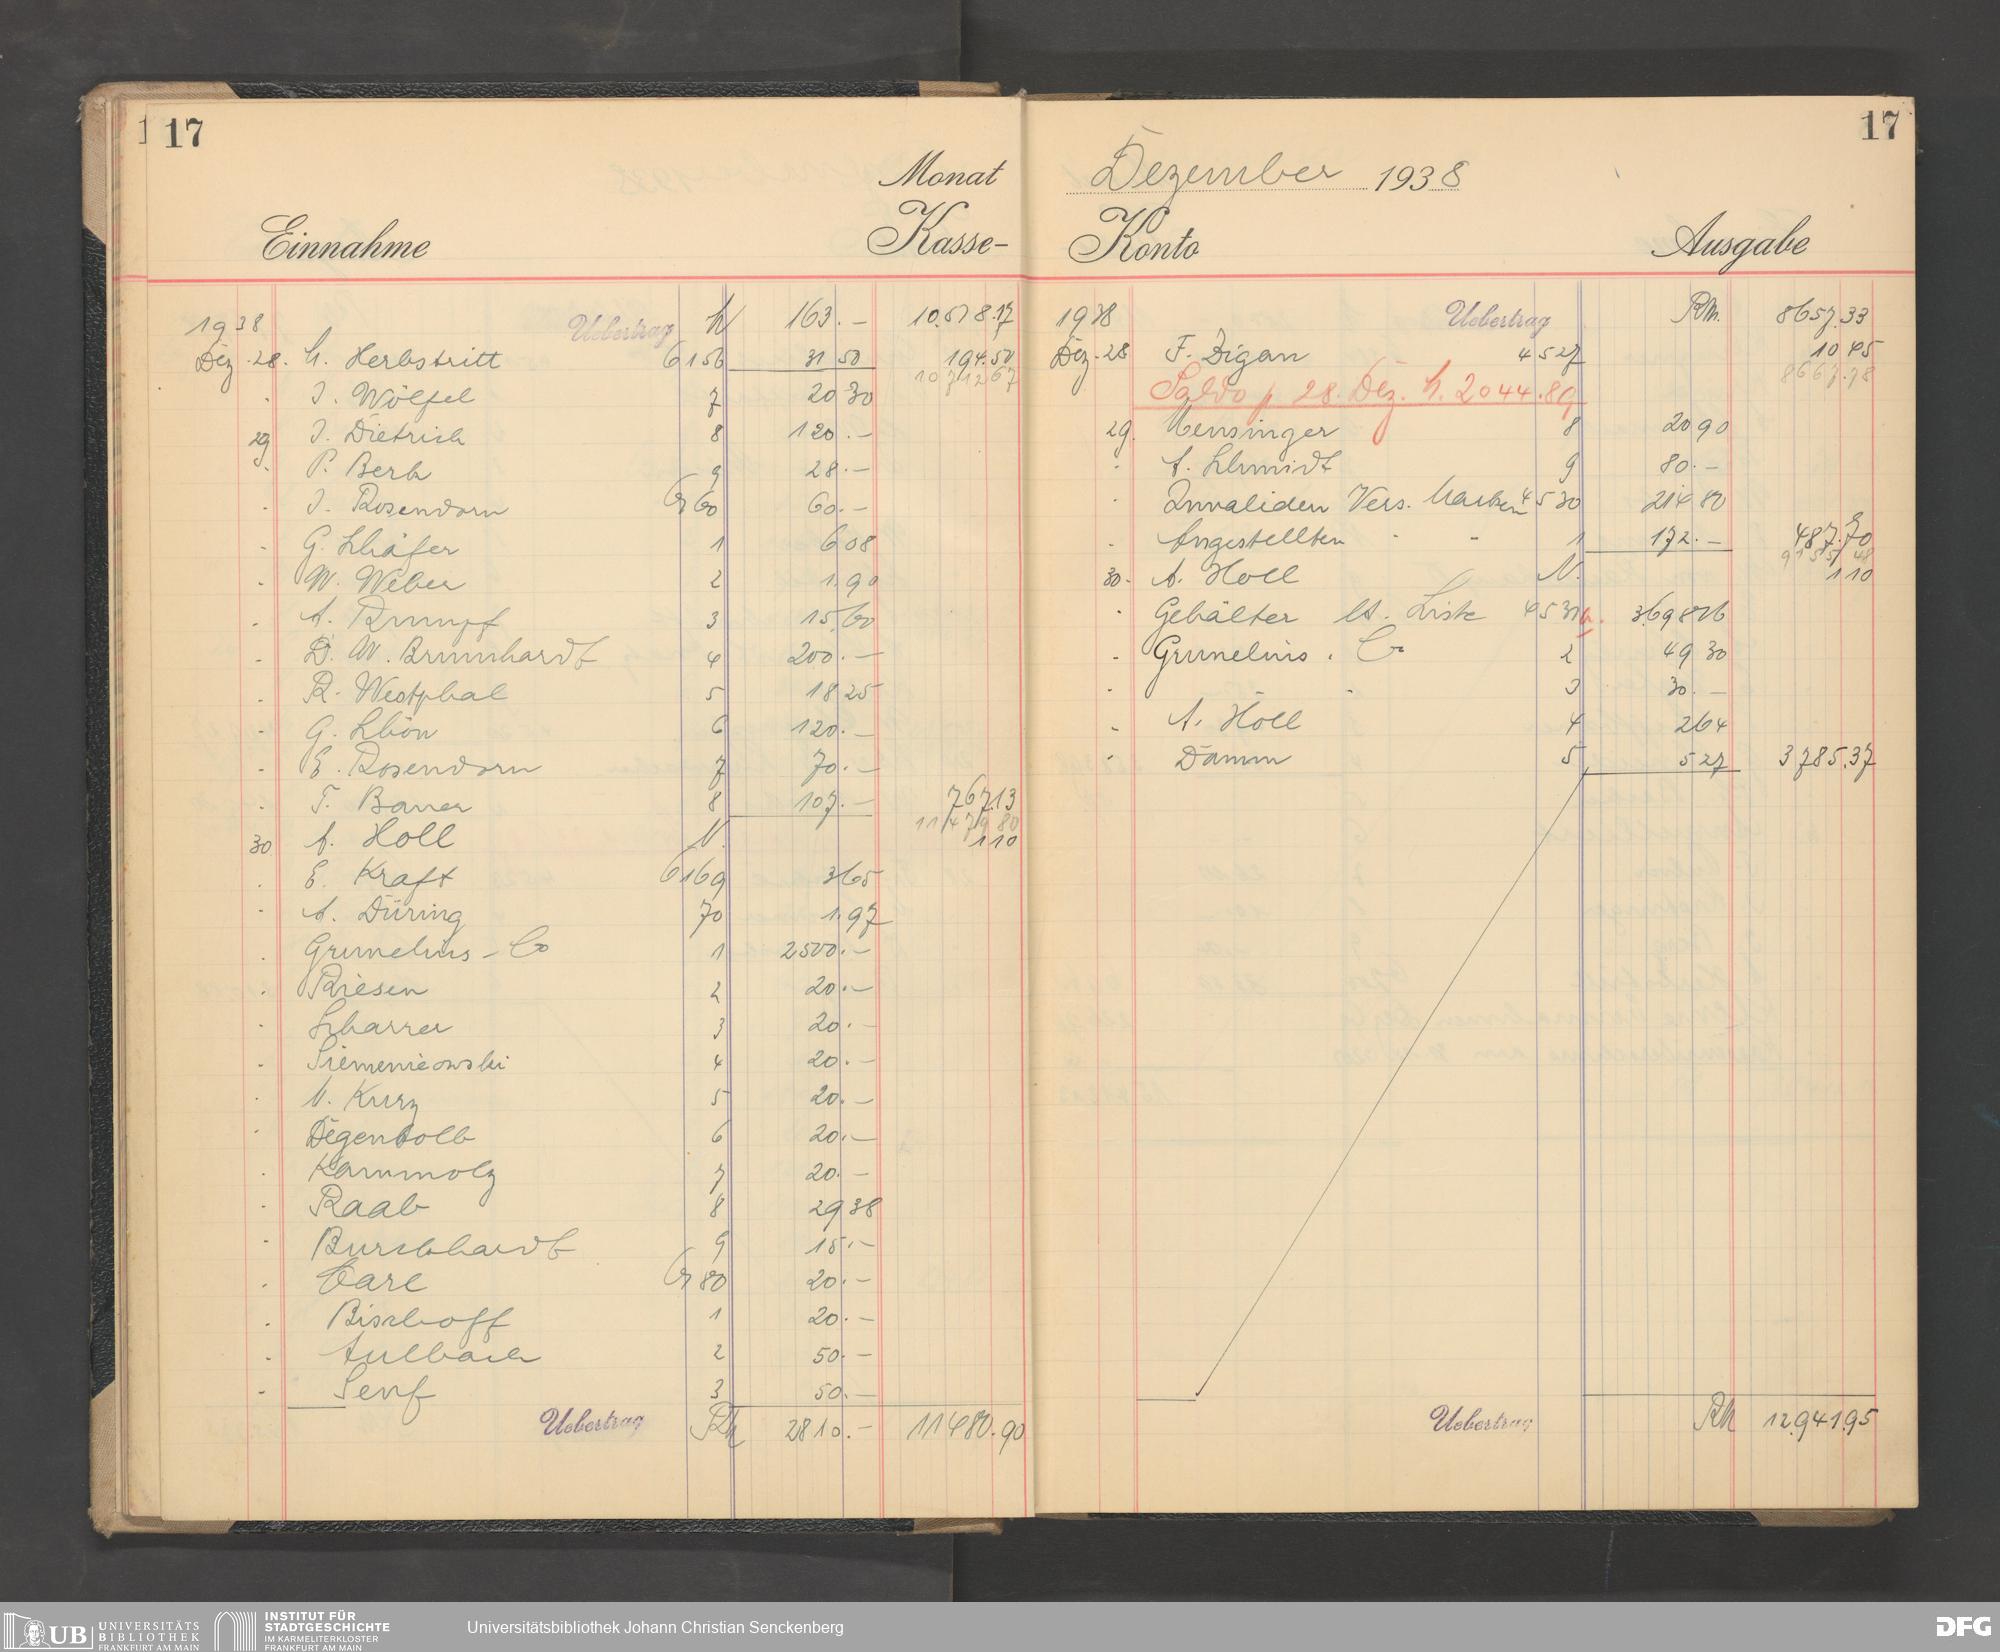 17
Monat
Einnahme
Kasse-
1938 Uebertrag M 163.— 10.518.17
Dez. 28. H. Herbstritt 6156 31 50 194.50
10712 67
J. Wölfel 7 20 30
29 J. Dietrich 8 120.—
P. Berk 9 28.—
J. Rosendorn 6160 60.—
G. Schäfer 1 6 08
W. Weber 2 1.90
A. Rumpf 3 15.60
D. W. Brunhardt 4 200.—
R. Westphal 5 18 25
G. Schön 6 120.—
E. Rosendorn 7 70.—
F. Bauer 8 107.— 767.13
11479 80
30 A. Holl N. 1 10
E. Kraft 6169 3 65
A. Düring 70 1.97
Grunelius - Co 1 2500.—
Riesen 2 20.—
Scharrer 3 20.—
Siemenicowski 4 20.—
N. Kurz 5 20.—
Degenkolb 6 20.—
Kammolz 7 20.—
Raab 8 29 38
Burckhardt 9 15.—
Carl 6180 20.—
Bischoff 1 20.—
Aulbach 2 50.—
Senf 3 50.—
Uebertrag RM 2810.— 11480.90
17
Dezember 1938
Konto
Ausgabe
1938 Uebertrag RM. 8657.33
Dez. 28 F. Digan 4527 10 45
8667.78
Saldo p. 28. Dez. M. 2044.89
29. Mensinger 8 20 90
A. Schmidt 9 80.—
Invaliden Vers. Marken 4530 214 80
Angestellten " " 1 172.— 487.70
9155 48
30. A. Holl N. 1 10
Gehälter lt. Liste 4531a. 3698 06
Grunelius . Co 2 49 30
" " 3 30.—
A. Holl 4 2 64
Damm 5 5 27 3785.37
Uebertrag RM 12.941.95
UB UNIVERSITÄTS
BIBLIOTHEK
FRANKFURT AM MAIN
INSTITUT FÜR
STADTGESCHICHTE
IM KARMELITERKLOSTER
FRANKFURT AM MAIN
Universitätsbibliothek Johann Christian Senckenberg
DFG